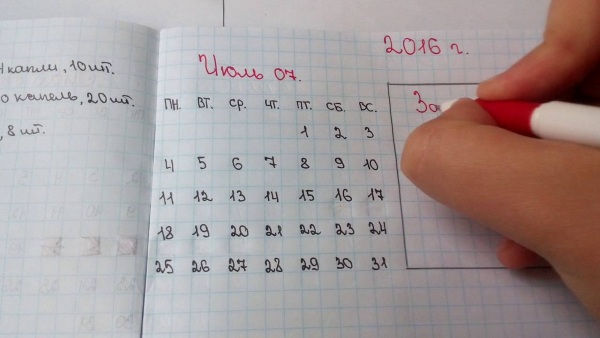 капли, 10 шт.
о капель, 20 шт.
, 8 шт.
2016 г.
Июль 07.
ПН. ВТ. СР. ЧТ. ПТ. СБ. ВС.
1 2 3
4 5 6 7 8 9 10
11 12 13 14 15 16 17
18 19 20 21 22 23 24
25 26 27 28 29 30 31
За